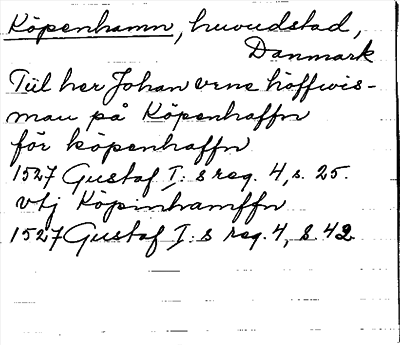 Köpenhamn, huvudstad,
Danmark
Till her Johan vrne höffvis-
man på Köpenhaffn
för köpenhaffn
1527 Gustaf I:s reg. 4, s. 25.
vtj Köpinhamffn
1527 Gustaf I:s reg. 4, s 42